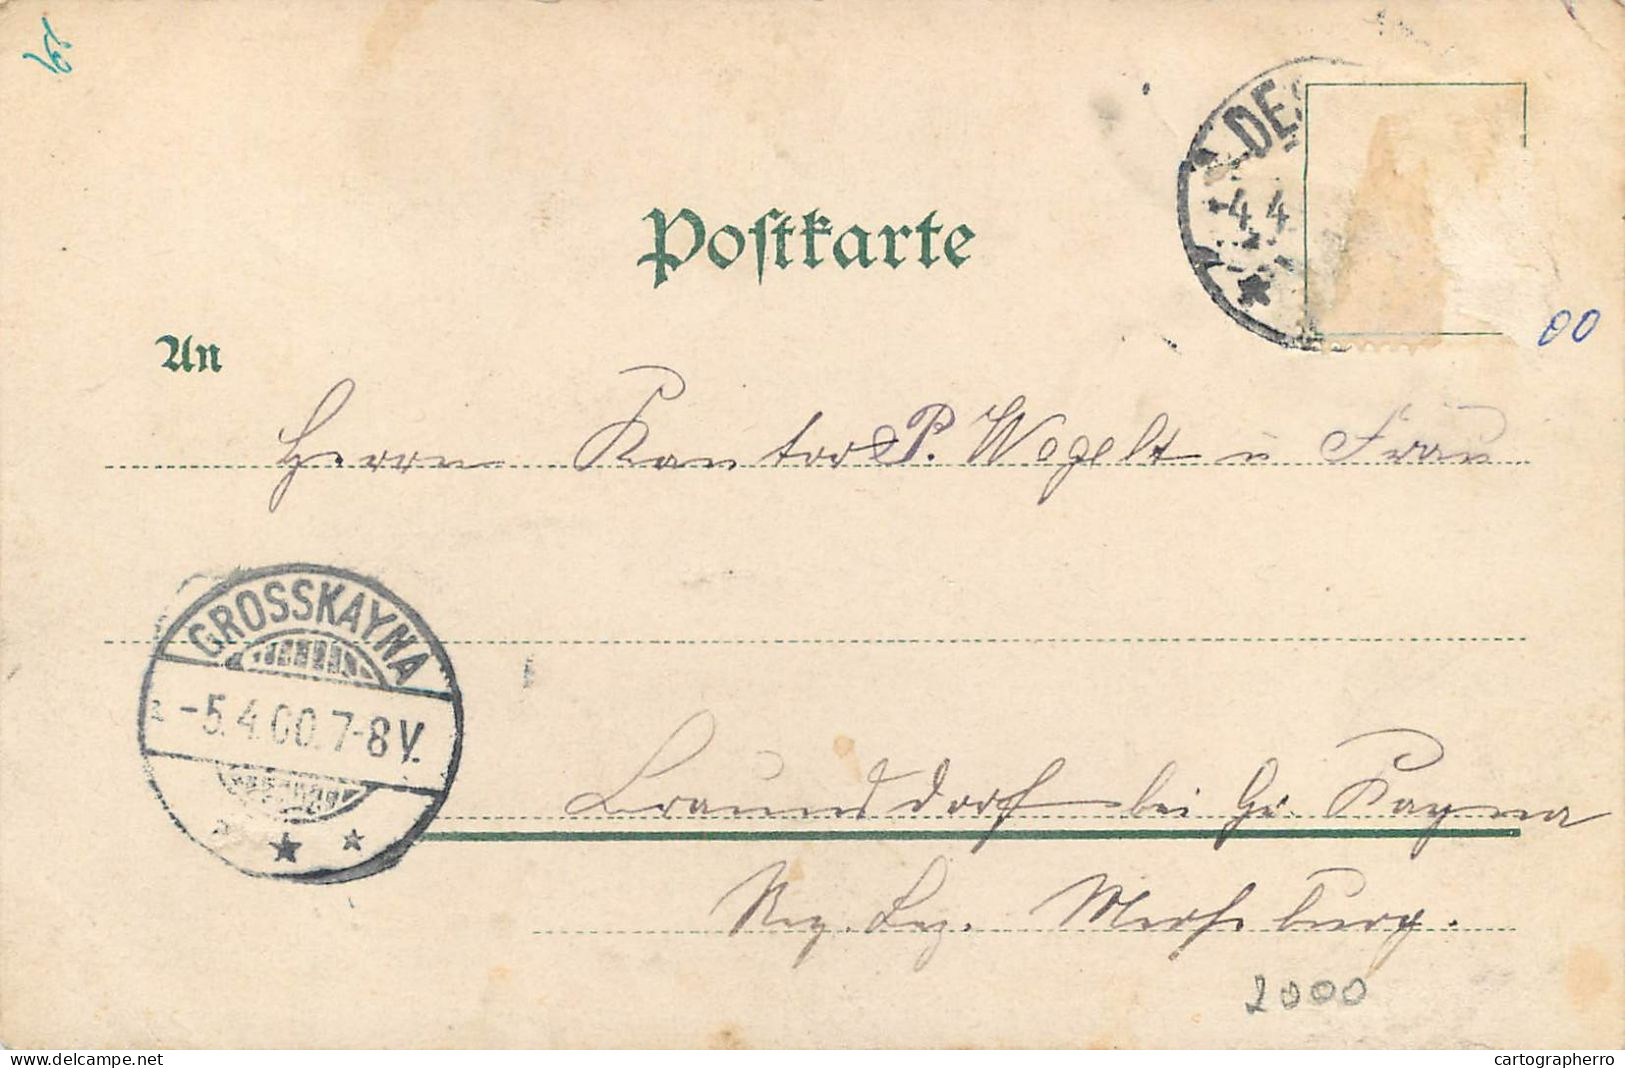 DES
-4.4.
Postkarte
00
An
Herrn Kantor P. Wogelt u Frau
GROSSKAYNA
-5.4.00.7-8V.
Braunsdorf bei Gr. Kayna
Reg. Bez. Merseburg.
2000
www.delcampe.net
cartographerro